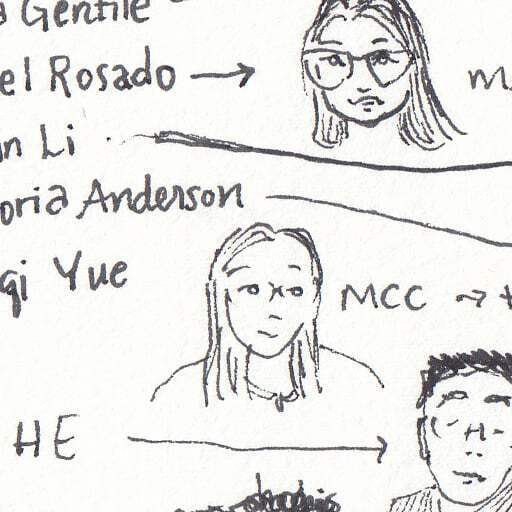 a Gentile
el Rosado
m
n Li
oria Anderson
qi Yue
MCC
HE